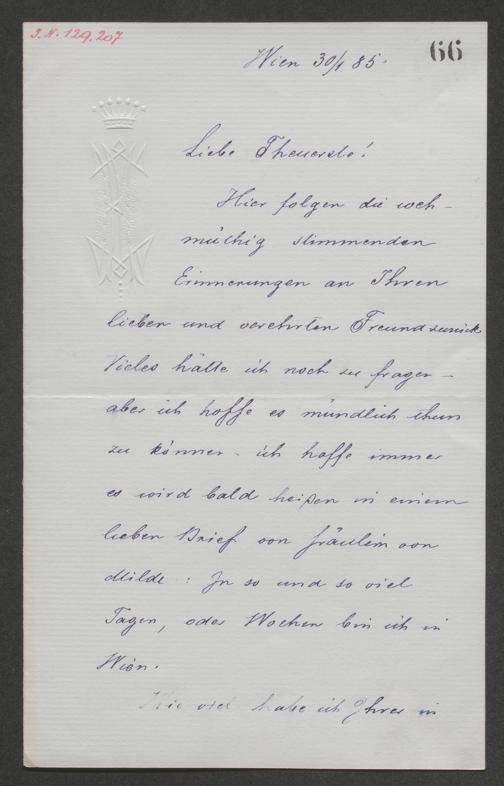 J.N. 129.207
66
Wien 30/1 85.
Liebe Theuerste!
Hier folgen die weh-
müthig stimmenden
Erinnerungen an Ihren
lieben und verehrten Freund zurück
Vieles hätte ich noch zu fragen –
aber ich hoffe es mündlich thun
zu können – ich hoffe immer
es wird bald heißen in einem
lieben Brief von Fräulein von
Milde: In so und so viel
Tagen, oder Wochen bin ich in
Wien.
Wie viel habe ich Ihrer in